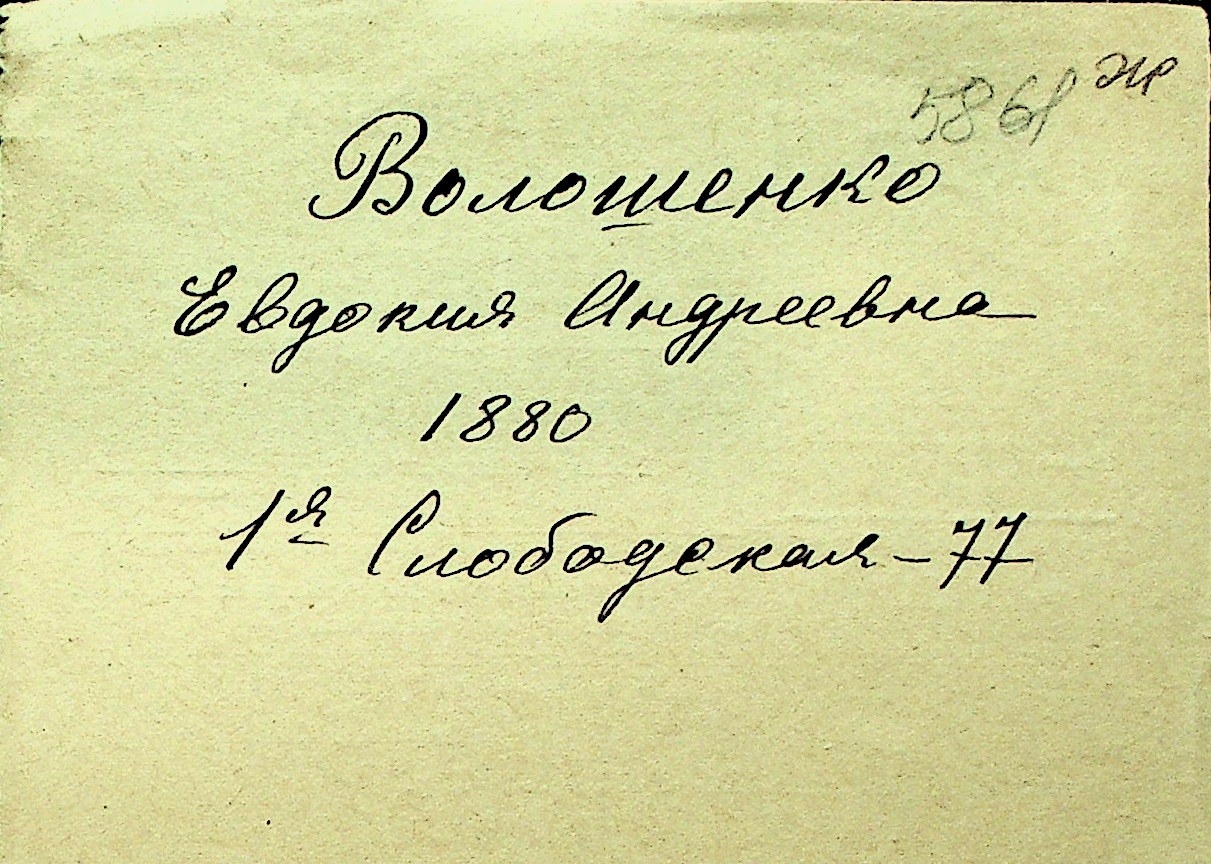 5861 ж
Волошенко
Евдокия Андреевна
1880
1я Слободская-77